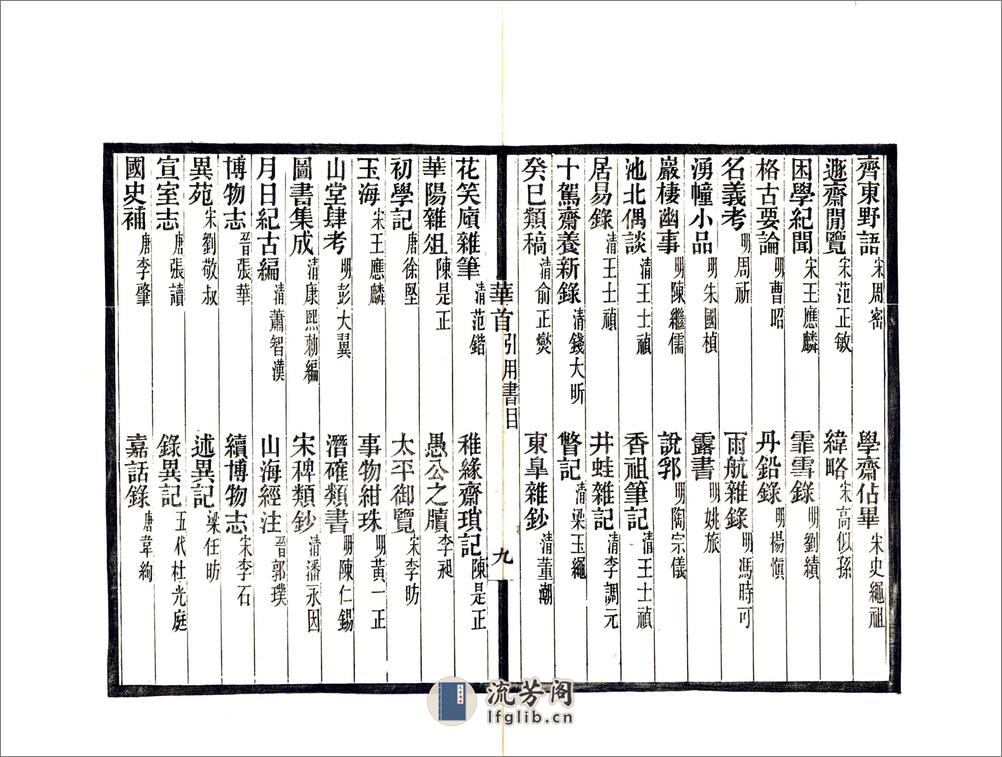 齊東野語 宋周密 學齋佔畢 宋史繩祖
遯齋閒覽 宋范正敏 緯略 宋高似孫
困學紀聞 宋王應麟 霏雪錄 明劉績
格古要論 明曹昭 丹鉛錄 明楊愼
名義考 明周祈 雨航雜錄 明馮時可
湧幢小品 明朱國楨 露書 明姚旅
巖棲幽事 明陳繼儒 說郛 明陶宗儀
池北偶談 清王士禎 香祖筆記 清王士禎
居易錄 清王士禎 井蛙雜記 清李調元
十駕齋養新錄 清錢大昕 瞥記 清梁玉繩
癸巳類稿 清俞正燮 東臯雜鈔 清董潮
華首 引用書目 九
花笑廎雜筆 清范鍇 稚緣齋瑣記 陳是正
華陽雜俎 陳是正 愚公之牘 李昶
初學記 唐徐堅 太平御覽 宋李昉
玉海 宋王應麟 事物紺珠 明黃一正
山堂肆考 明彭大翼 潛確類書 明陳仁錫
圖書集成 清康熙勅編 宋稗類鈔 清潘永因
月日紀古編 清蕭智漢 山海經注 晉郭璞
博物志 晉張華 續博物志 宋李石
異苑 宋劉敬叔 述異記 梁任昉
宣室志 唐張讀 錄異記 五代杜光庭
國史補 唐李肇 嘉話錄 唐韋絢
流芳阁
lfglib.cn